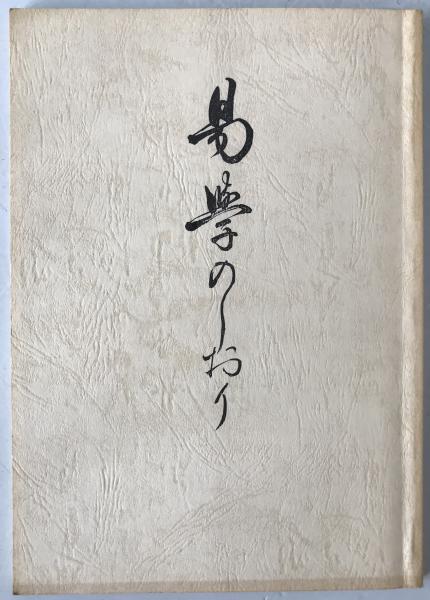 易學のしおり